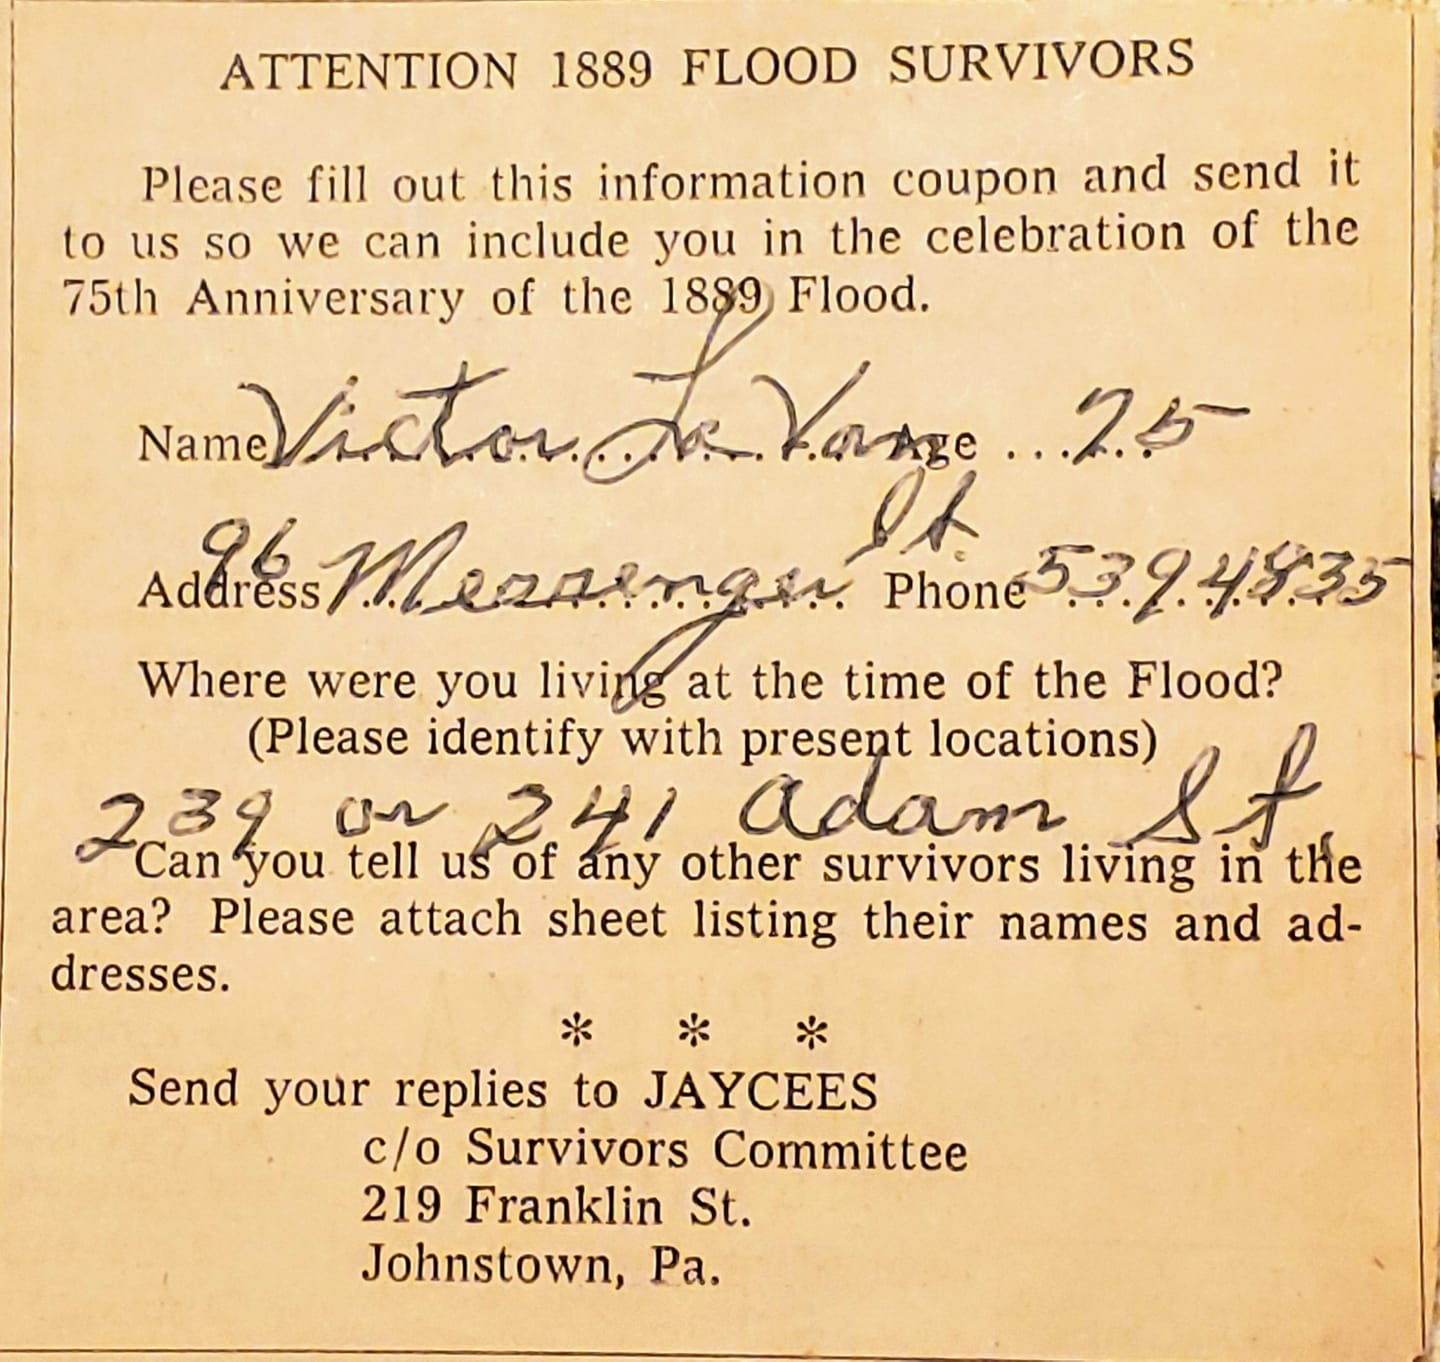 ATTENTION 1889 FLOOD SURVIVORS
Please fill out this information coupon and send it
to us so we can include you in the celebration of the
75th Anniversary of the 1889 Flood.
Name Victor La Vange ... 75
Address 96 Messenger St. Phone 539 4835
Where were you living at the time of the Flood?
(Please identify with present locations)
239 or 241 Adam St.
Can you tell us of any other survivors living in the
area? Please attach sheet listing their names and ad-
dresses.
* * *
Send your replies to JAYCEES
c/o Survivors Committee
219 Franklin St.
Johnstown, Pa.